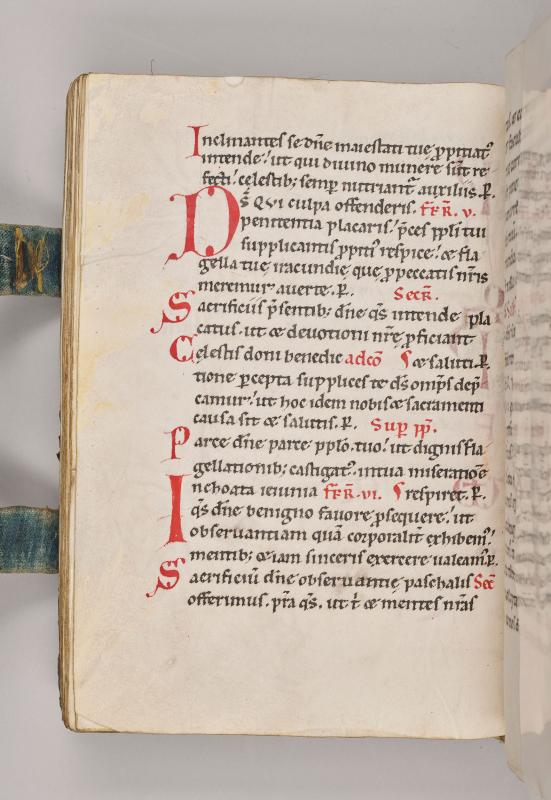 Inclinantes se dñe maiestati tuę ꝓpitiat᾿
intende. ut qui diuino munere sūt re
fecti. celestib; semp nutriant᾿ auxiliis. ꝑ.
D̄s Qui culpa offenderis. fr̄. v.
penitentia placaris. p̄ces ppl̄i tui
supplicantis ꝓpiti᾿ respice. & fla
gella tuę iracundię que ꝓ peccatis nr̄is
meremur auerte. ꝑ. Secr̄.
Sacrificiis p̄sentib; dñe qs̄ intende pla
catus. ut & deuotioni nr̄ę ꝓficiant
Cęlestis doni benedic adcō & saluti. ꝑ.
tione ꝑcepta supplices te ds̄ omp̄s dep̄
camur. ut hoc idem nobis & sacramenti
causa sit & salutis. ꝑ. Sup̄ pp̄.
Parce dñe parce pplo tuo. ut dignis fla
gellationib; castigat᾿. in tua miseratiōe
Inchoata ieiunia fr̄. vi. respiret. ꝑ.
qs̄ dñe benigno fauore ꝓsequere. ut
obseruantiam quā corporalit᾿ exhibem᾿.
mentib; &iam sinceris exercere ualeam᾿. ꝑ.
Sacrificiū dñe obseruantię paschalis Sec̄
offerimus. pr̄a qs̄. ut t᾿ & mentes nr̄as